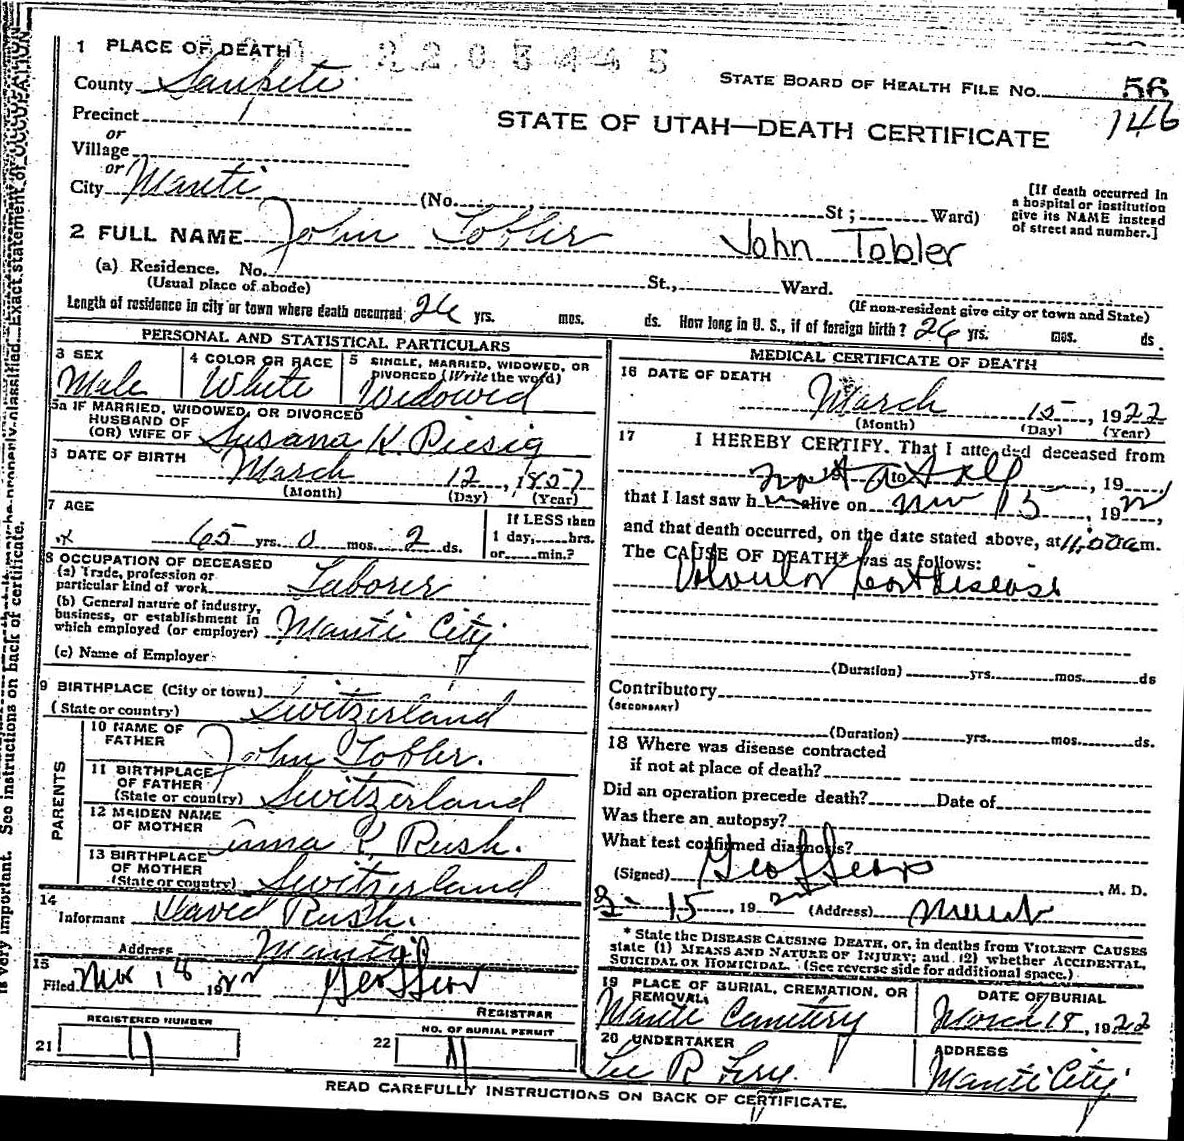 2203445
1 PLACE OF DEATH
STATE BOARD OF HEALTH FILE NO. 56
146
County Sanpete
Precinct
or
Village
or
City Manti
STATE OF UTAH—DEATH CERTIFICATE
(No. St; Ward)
[If death occurred in
a hospital or institution
give its NAME instead
of street and number.]
2 FULL NAME John Tobler John Tobler
(a) Residence. No. St., Ward.
(Usual place of abode)
(If non-resident give city or town and State)
Length of residence in city or town where death occurred 26 yrs. mos. ds. How long in U. S., if of foreign birth? 26 yrs. mos. ds.
PERSONAL AND STATISTICAL PARTICULARS
3 SEX
Male
4 COLOR OR RACE
White
5 SINGLE, MARRIED, WIDOWED, OR
DIVORCED (Write the word)
Widowed
5a IF MARRIED, WIDOWED, OR DIVORCED
HUSBAND OF
(OR) WIFE OF Susana K.
6 DATE OF BIRTH March 12, 1857
(Month) (Day) (Year)
7 AGE
65 yrs. 0 mos. 2 ds.
If LESS then
1 day, hrs.
or min.?
8 OCCUPATION OF DECEASED
(a) Trade, profession or
particular kind of work Laborer
(b) General nature of industry,
business, or establishment in
which employed (or employer) Manti City
(c) Name of Employer
9 BIRTHPLACE (City or town)
(State or country) Switzerland
PARENTS
10 NAME OF
FATHER John Tobler.
11 BIRTHPLACE
OF FATHER
(State or country) Switzerland
12 MAIDEN NAME
OF MOTHER Anna Rush.
13 BIRTHPLACE
OF MOTHER
(State or country) Switzerland
14
Informant David Rush.
Address Manti
15
Filed Mar 18 1922
REGISTRAR
REGISTERED NUMBER
21 11
NO. OF BURIAL PERMIT
22 11
MEDICAL CERTIFICATE OF DEATH
16 DATE OF DEATH
March 15, 1922
(Month) (Day) (Year)
17 I HEREBY CERTIFY, That I attended deceased from
not at all to , 19
that I last saw h alive on 15, 192
and that death occurred, on the date stated above, at 11,00am.
The CAUSE OF DEATH* was as follows:
disease
(Duration) yrs. mos. ds
Contributory
(SECONDARY)
(Duration) yrs. mos. ds.
18 Where was disease contracted
if not at place of death?
Did an operation precede death? Date of
Was there an autopsy?
What test confirmed diagnosis?
(Signed) , M. D.
3-15, 192 (Address) Manti
* State the DISEASE CAUSING DEATH, or, in deaths from VIOLENT CAUSES
state (1) MEANS AND NATURE OF INJURY; and (2) whether ACCIDENTAL,
SUICIDAL OR HOMICIDAL. (See reverse side for additional space.)
19 PLACE OF BURIAL, CREMATION, OR
REMOVAL
Manti Cemetery
DATE OF BURIAL
March 18, 1922
20 UNDERTAKER
ADDRESS
Manti City
READ CAREFULLY INSTRUCTIONS ON BACK OF CERTIFICATE.
is very important. See instructions on back of certificate.
properly classified. Exact statement of OCCUPATION